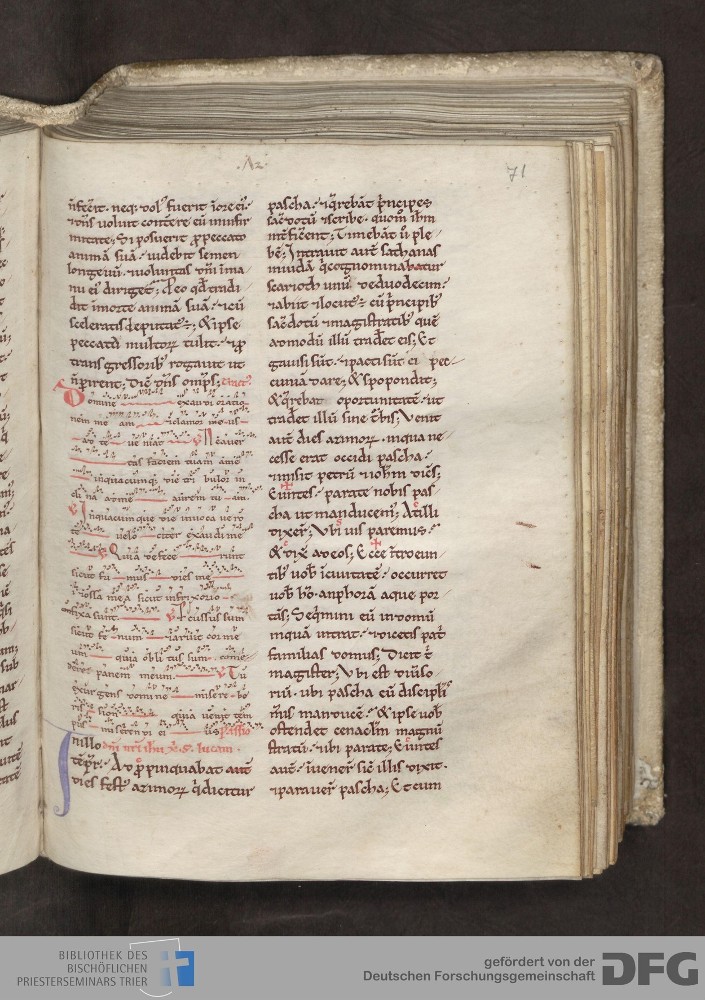 71
n̄ fecit. neq; dol᷒ fuerit ī ore ei᷒.
⁊ dn̄s uoluit conterere eū in infir
mitate; Si posuerit ꝓ peccato
animā suā. uidebit semen
longeuū. ⁊ uoluntas dn̄i ī ma
nu ei᷒ diriget᷒;
dit ī morte animā suā. ⁊ cū
sceleratis deputat᷒ ē; & ipse
peccatū multoꝝ tulit. ⁊ ꝓ
transgressorib; rogauit ut
n̄ perirent; dn̄s om̄ps;
Domine exaudi oratio
nem me am ⁊ clamor me us
ad te ue niat Ne auer
tas faciem tuam a me
in quacumq; die tri bulor in
cli na ad me aurem tu am.
In quacumque die inuoca uero
te uelo citer exaudi me
Quia defece runt
sicut fu mus dies me
⁊ ossa mea sicut in frixorio
confixa sunt Percussus sum
sicut fe num ⁊ aruit cor me
um quia obli tus sum come
dere panem meum. Tu
exur gens domine misere be
ris sion quia uenit tem
pus miserendi ei us Passio
In illo dn̄i nr̄i ih̄u xp̄i s. lucam.
tēpr̄. Appropinquabat aut̄
dies fest᷒ azimoꝝ q̇ dicitur
pascha. ⁊ q̄rebāt p̄ncipes
sac̄dotū ⁊ scribe. quom̄ ih̄m
int̄ficēent; Timebāt u̇ ple
bē; Intrauit aut̄ sathanas
in iudā q̇ cognominabatur
scarioth unū de duodecim.
⁊ abiit ⁊ locut᷒ ē cū p̄ncipib;
sac̄dotū ⁊ magistratib; quē
admodū illū trad̄et eis; Et
gauisi sūt. ⁊ pacti sūt ei pec
cuniā dare; & spopondit;
& q̄rebat oportunitatē. ut
trad̄et illū sine t̄bis; Venit
aut̄ dies azimoꝝ. in qua ne
cesse erat occidi pascha.
⁊ misit petrū ⁊ ioh̄m dic̄s;
Euntes. parate nobis pas
cha ut manducem᷒; At illi
dixer̄; Vbi uis paremus.
& dix̄ ad eos; Ecce ītroeun
tib; uob̄ ī ciuitatē. occurret
uob̄ hō. anphorā aque por
tās; Seq̇mini eū in domū
in quā intrat. ⁊ dicetis pat̄
familias domus; Dicit t̄
magister; Vbi est diuiso
riū. ubi pascha cū discipl̄i
m̄is manducē. & ipse uob̄
ostendet cenac̄lm magnū
stratū. ⁊ ibi parate; Euntes
aut̄. ⁊ inuener̄ sic̄ illis dixit.
⁊ parauer̄ pascha; Et cum
BIBLIOTHEK DES
BISCHÖFLICHEN
PRIESTERSEMINARS TRIER
gefördert von der
Deutschen Forschungsgemeinschaft
DFG